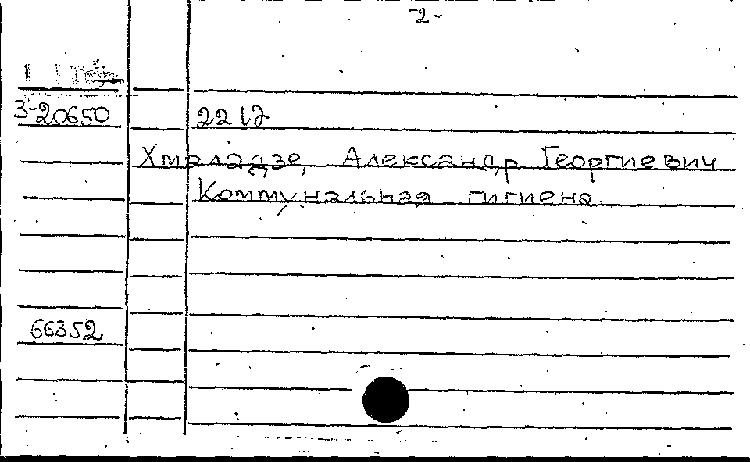 -2-
3-20650
22
Хмаладзе, Александр Георгиевич
Коммунальная гигиена
66352